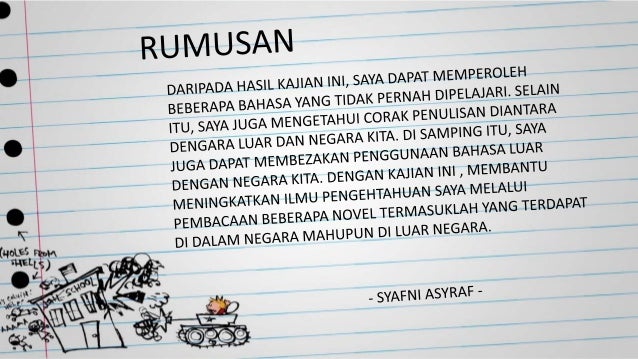 RUMUSAN
DARIPADA HASIL KAJIAN INI, SAYA DAPAT MEMPEROLEH
BEBERAPA BAHASA YANG TIDAK PERNAH DIPELAJARI. SELAIN
ITU, SAYA JUGA MENGETAHUI CORAK PENULISAN DIANTARA
DENGARA LUAR DAN NEGARA KITA. DI SAMPING ITU, SAYA
JUGA DAPAT MEMBEZAKAN PENGGUNAAN BAHASA LUAR
DENGAN NEGARA KITA. DENGAN KAJIAN INI , MEMBANTU
MENINGKATKAN ILMU PENGEHTAHUAN SAYA MELALUI
PEMBACAAN BEBERAPA NOVEL TERMASUKLAH YANG TERDAPAT
DI DALAM NEGARA MAHUPUN DI LUAR NEGARA.
(HOLES FROM
SHELLS)
SCHOOL
- SYAFNI ASYRAF -